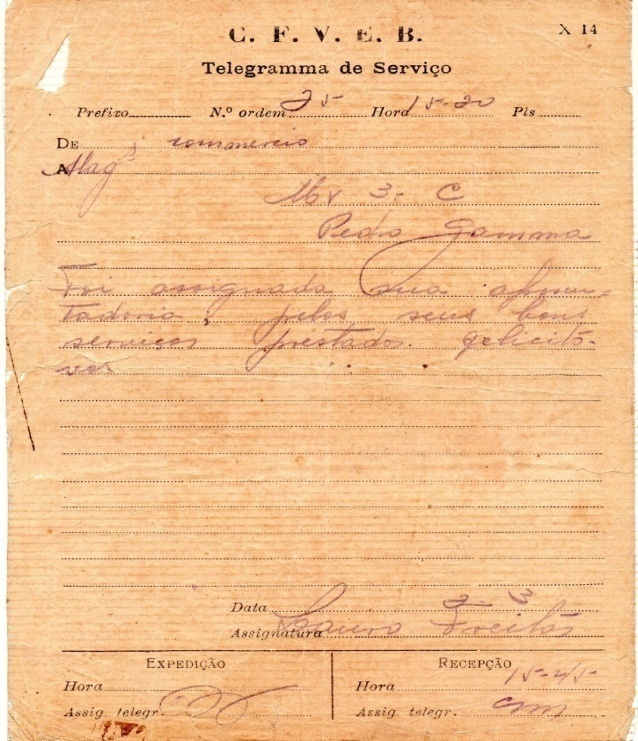 C. F. V. E. B.
X 14
Telegramma de Serviço
Prefixo N.º ordem 25 Hora 15-20 Pls
DE commercio
A Alag
Mv 3- C
Pedro Gamma
Foi assignada sua aposen-
tadoria, pelos seus bons
serviços prestados. Felicito-
vos
Data 2-3
Assignatura Lauro Freitas
EXPEDIÇÃO
Hora
Assig telegr.
RECEPÇÃO
Hora 15-45-
Assig telegr.